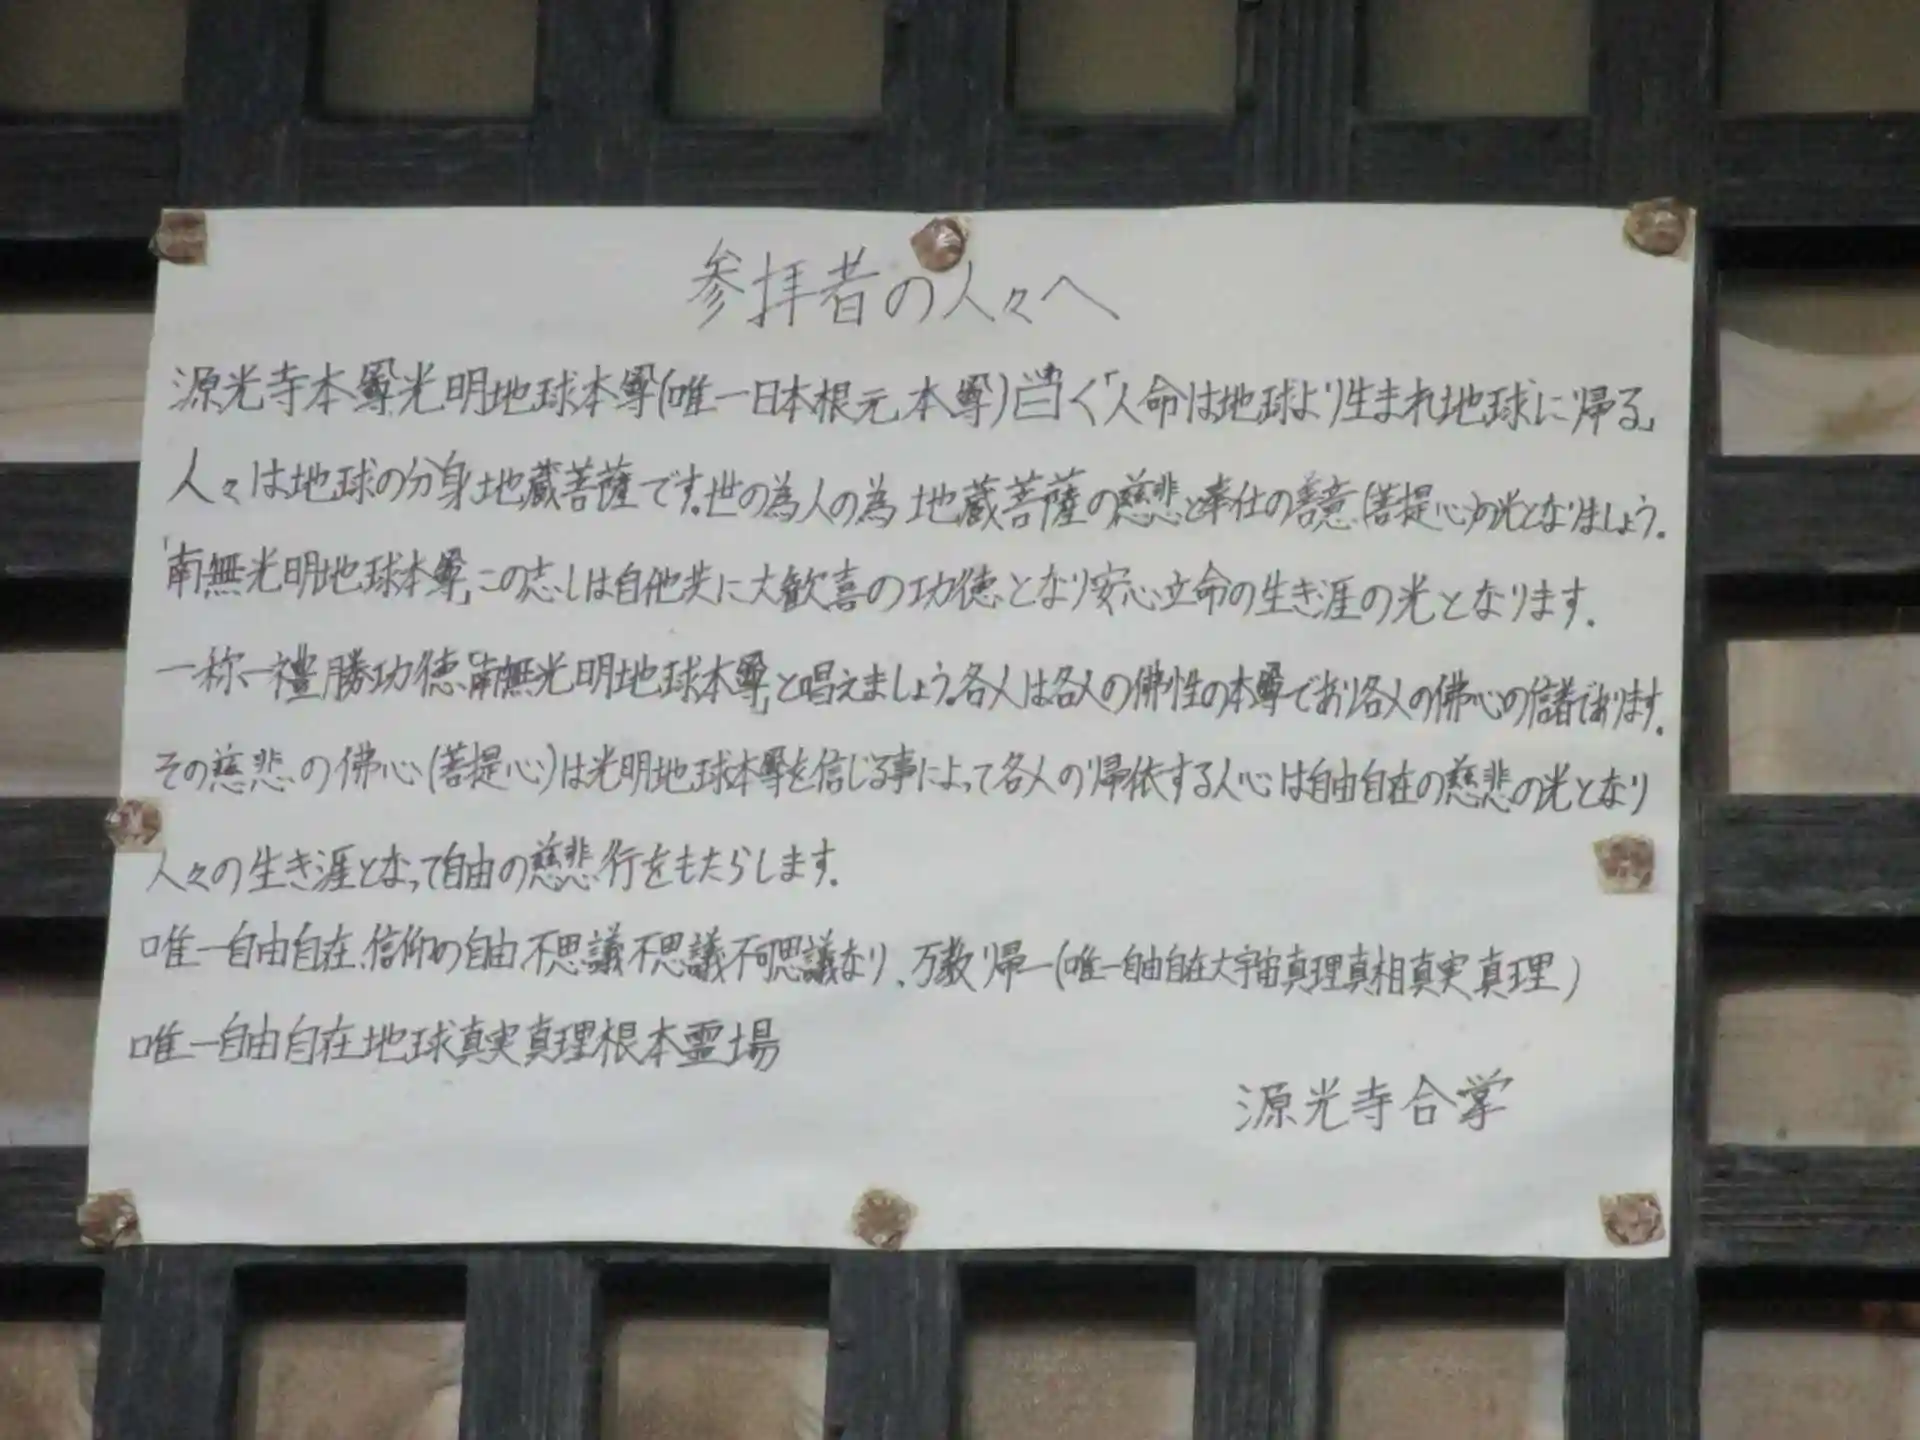 参拝者の人々へ
源光寺本尊光明地球本尊(唯一日本根元本尊)曰く「人命は地球より生まれ地球に帰る」
人々は地球の分身地蔵菩薩です。世の為人の為 地蔵菩薩の慈悲と奉仕の善意(菩提心)の光となりましょう。
「南無光明地球本尊」この志しは自他共に大歓喜の功徳となり安心立命の生き涯の光となります。
一称一禮勝功徳、「南無光明地球本尊」と唱えましょう。各人は各人の佛性の本尊であり各人の佛心の信者であります。
その慈悲の佛心(菩提心)は光明地球本尊を信じる事によって各人の帰依する人心は自由自在の慈悲の光となり
人々の生き涯となって自由の慈悲行をもたらします。
唯一自由自在、信仰の自由、不思議不思議不可思議なり、万教帰一(唯一自由自在大宇宙真理真相真実真理)
唯一自由自在地球真実真理根本霊場
源光寺合掌